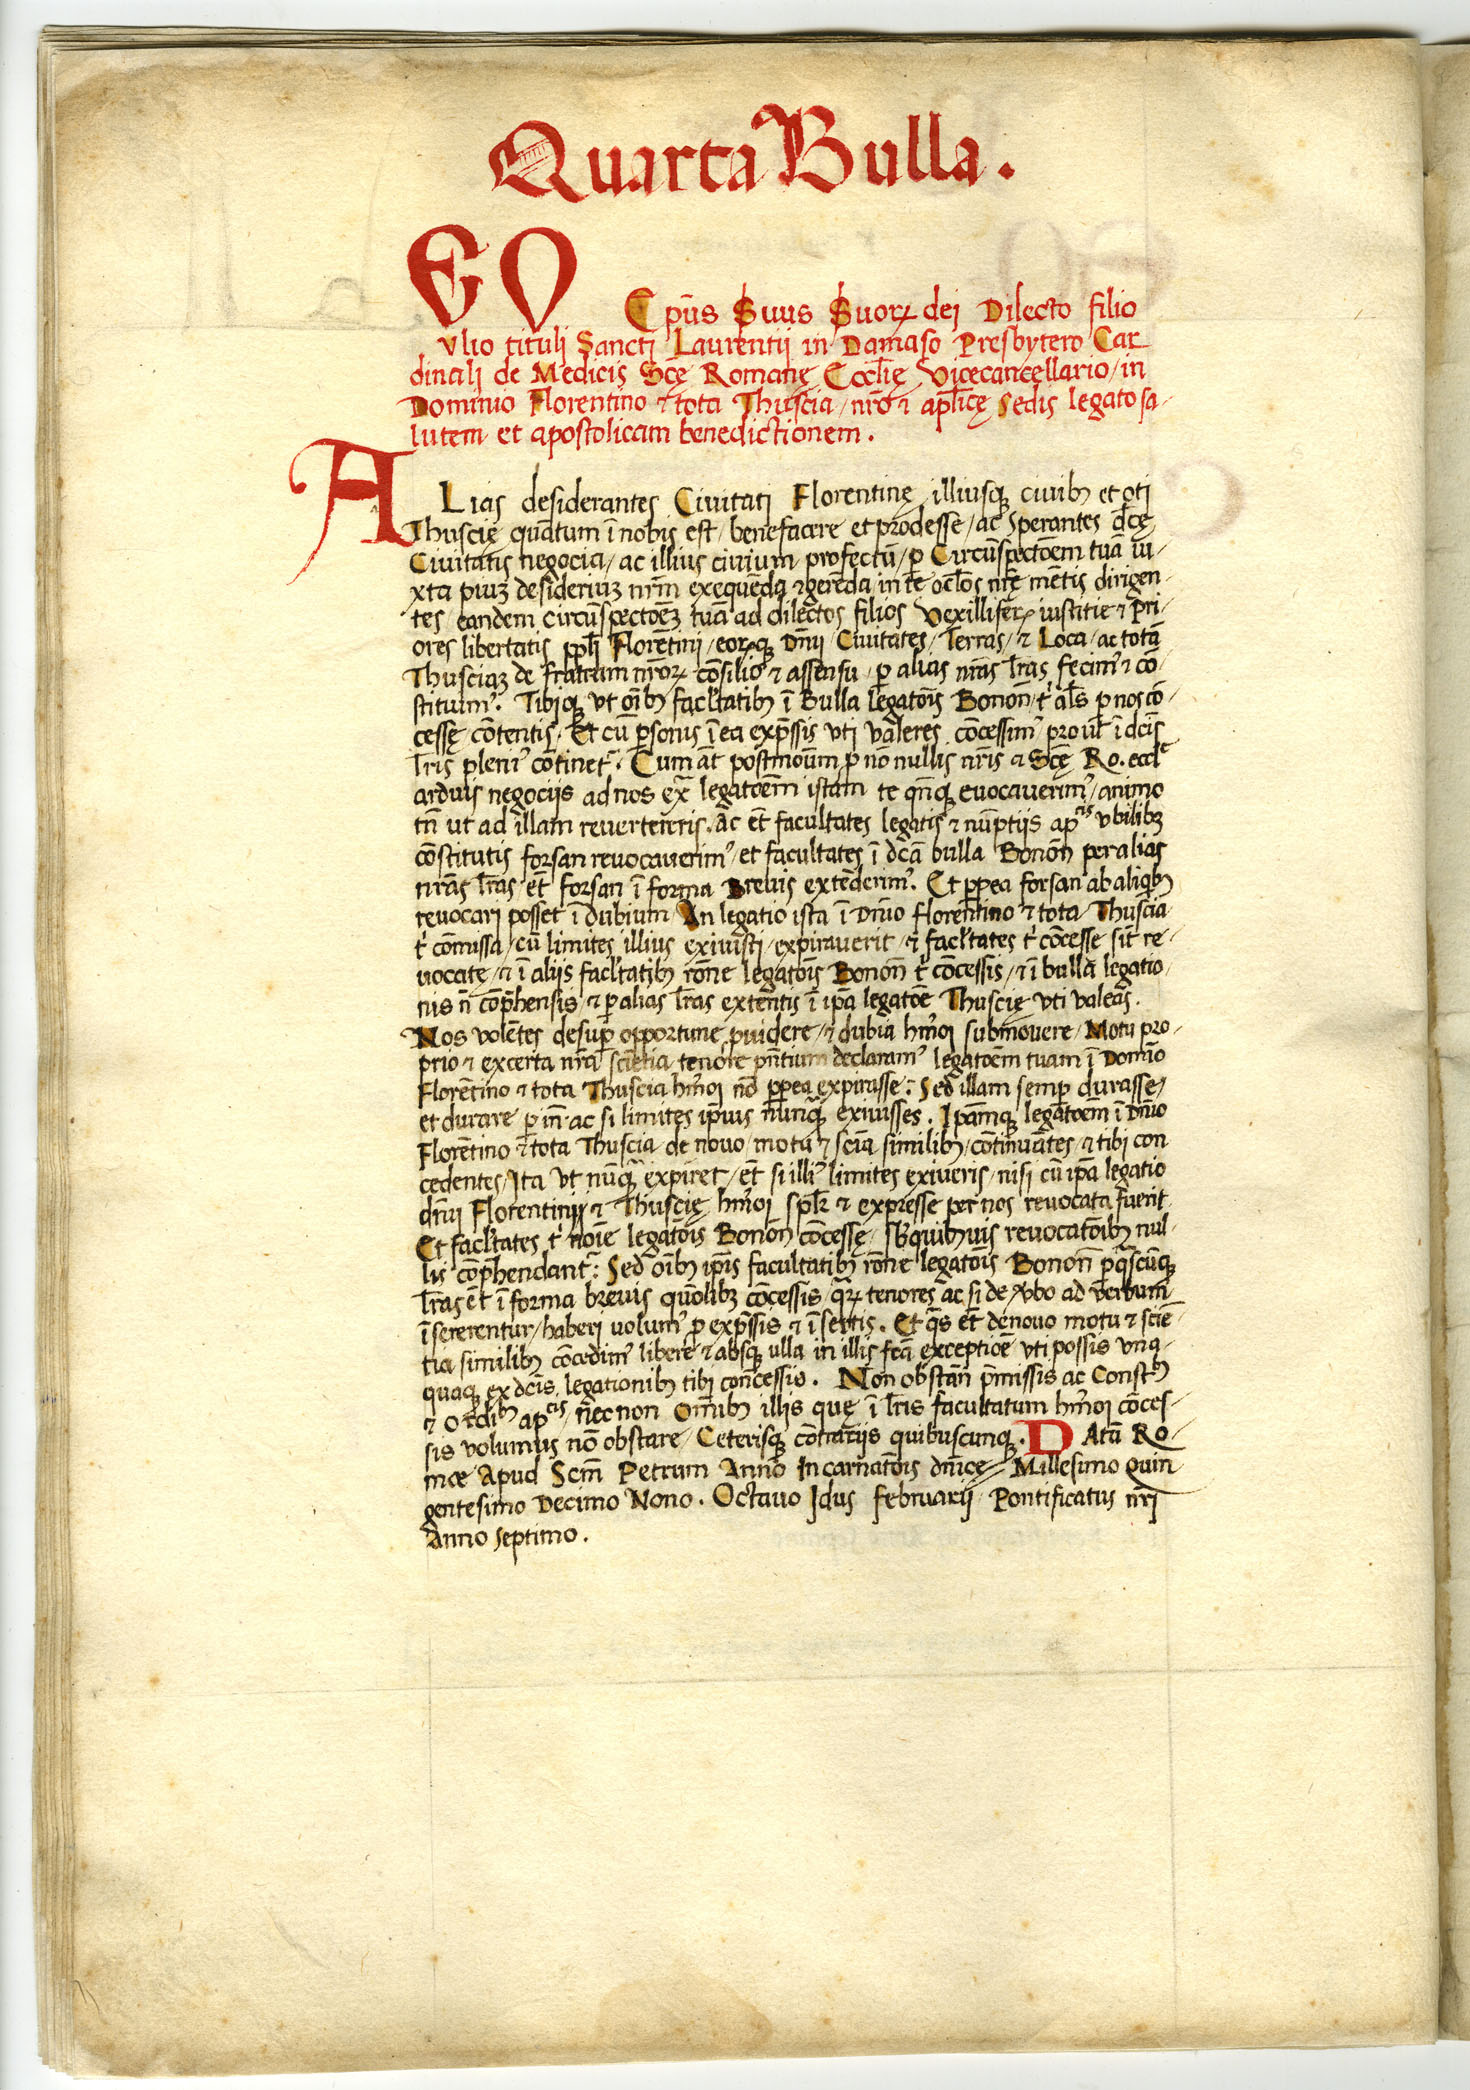 Quarta Bulla.
EO Ep̄us Suus Suorꝝ dei Dilecto filio
vlio tituli Sancti Laurentii in Damaso Presbytero Car
dinali de Medicis Scę Romanę Eccl̄ię Vicecancellario / in
Dominio Florentino ⁊ tota Thuscia / nr̄o ⁊ apl̄icę sedis legato sa-
lutem et apostolicam benedictionem.
ALias desiderantes Ciuitati Florentinę illiusqꝫ ciuibꝫ et toti
Thuscię quātum ī nobis est / benefacere et prodesse / ac sperantes dc̄ę
Ciuitatis negocia / ac illius ciuium profectū / ꝑ Circūspectōem tuā iu-
xta piuꝫ desideriuꝫ nrm̄ exequēda ⁊ gerēda in te ocl̄os nrę̄ mētis dirigen-
tes / eandem circūspectōeꝫ tuā ad dilectos filios Vexilliferꝝ iustitie ⁊ pri-
ores libertatis ppl̄i Florētini / eorꝝqꝫ Dn̄ii Ciuitates / Terras / ⁊ Loca / ac totā
Thusciaꝫ de fratrum nr̄orꝝ cōsilio ⁊ assensu / ꝑ alias nrās lr̄as fecim' ⁊ cō-
stituim'. Tibiqꝫ vt oībꝫ facl̄tatibꝫ ī Bulla legatōis Bonoñ t' al's ꝑ nos cō-
cessę cōtentis / Et cū ꝑsonis ī ea exp̄ssis vti valeres concessim' prout ī dcīs
lr̄is pleni' cōtinet'. Cum āt postmodum ꝑ nō nullis nr̄is ⁊ Scę Ro. eccl'
arduis negociis ad nos ex legatōem istam te qn̄qꝫ euocauerim' / animo
tn̄ ut ad illam reuertereris. Ac et̄ facultates legatis ⁊ nūptiis apcis vbilibꝫ
cōstitutis forsan reuocauerim' / et facultates ī dcā bulla Bonoñ per alias
nrās lr̄as et̄ forsan ī forma Breuis extēderim'. Et ꝓpea forsan ab aliqibꝫ
reuocari posset ī dubium An legatio ista ī Dn̄io Florentino ⁊ tota Thuscia
t' cōmissa / cū limites illius exiuisti / expirauerit / ⁊ facl̄tates t' cōcesse sīt re-
uocatę / ⁊ ī aliis facl̄tatibꝫ rōne legatōis Bonoñ t' cōcessis / ⁊ ī bulla legatio-
nis n̄ cōp̄hensis ⁊ ꝑ alias lr̄as extentis ī ip̄a legatōe Thuscię vti valeas.
Nos volētes desuꝑ opportune ꝓuidere / ⁊ dubia hm̄oi submouere / Motu pro-
prio ⁊ excerta nr̄a sciētia tenore pn̄tium declaram' legatōem tuam ī Domīo
Florētino ⁊ tota Thuscia hm̄oi nō ꝓpea expirasse: Sed illam semꝑ durasse
et durare ꝑ in̄ ac si limites ip̄ius nunqꝫ exiuisses. Ipāmqꝫ legatōem ī Dn̄io
Florētino ⁊ tota Thuscia de nouo / motu ⁊ sciā similibꝫ / cōtinuātes / ⁊ tibi con
cedentes / Ita vt nūqꝫ expiret / et̄ si illi' limites exiueris / nisi cū ip̄a legatio
dn̄ii Florentini ⁊ Thuscię hm̄oi spl̄r ⁊ expresse per nos reuocata fuerit.
Et facl̄tates t' noīe legatōis Bonoñ cōcessę / sb' quibuuis reuocatōibꝫ nul-
lis cōp̄hendant': Sed oībꝫ ip̄is facultatibꝫ rōne legatōis Bonoñ ꝑ qscūqꝫ
lr̄as et̄ ī forma breuis quōlibꝫ cōcessis / qrꝝ tenores ac si de v̄bo ad verbum
ī sererentur / haberi volum' ꝑ exp̄ssis ⁊ ī sertis. Et qs et̄ denouo motu ⁊ sciē-
tia similibꝫ cōcedim' libere ⁊ absqꝫ ulla in illis fcā exceptiōe vti possis vna-
quaqꝫ ex dcīs legationibꝫ tibi concessis. Non obstan̄ p̄missis ac Constbꝫ
⁊ Ordibꝫ apcis / necnon Omībꝫ illis quę ī lr̄is facultatum hm̄oi cōces-
sis volumus nō obstare / Ceterisqꝫ cōtrariis quibuscunqꝫ. DAtū Ro-
mae Apud Scm̄ Petrum Anno Incarnatōis dn̄icę Millesimo quin
gentesimo Decimo Nono. Octauo Idus februarii Pontificatus nr̄i
Anno septimo.